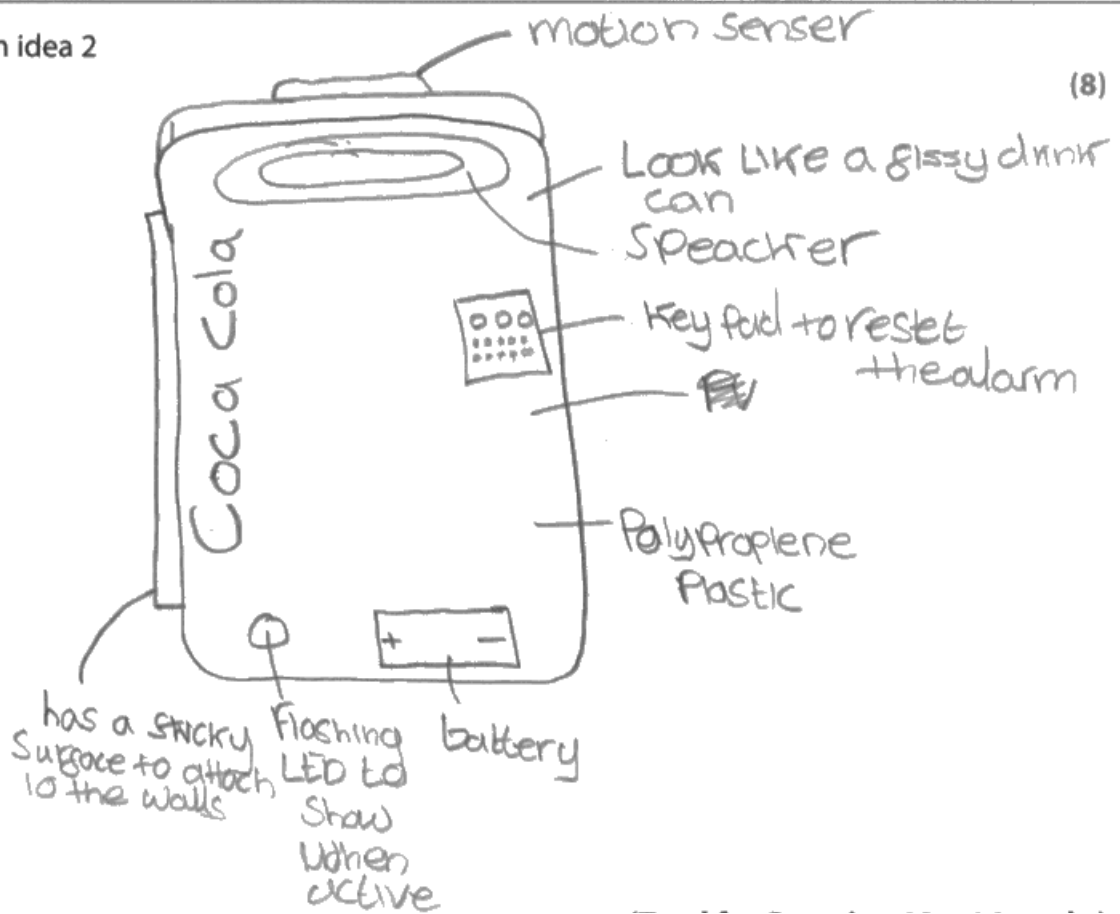 n idea 2
motion senser
(8)
Look Like a fissy drink
can
Speacker
Key Pad to reset
the alarm
Coca Cola
Polyproplene
Plastic
+ −
has a sticky
Surface to attach
to the walls
Flashing
LED to
Show
When
active
battery